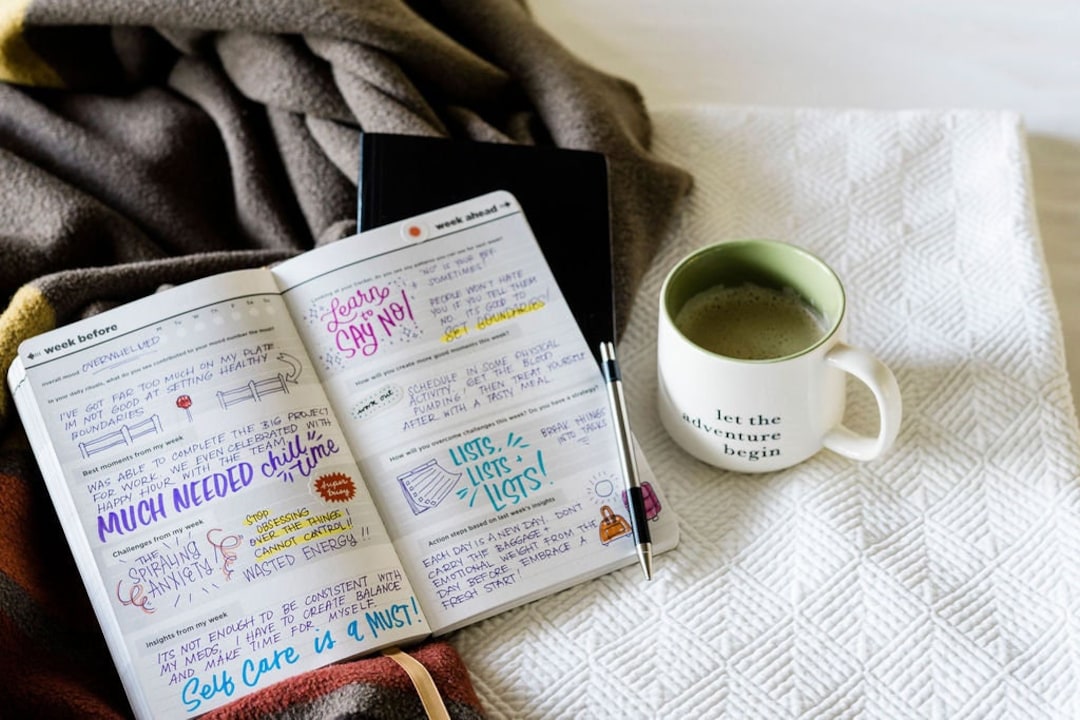 week before
M T W T F Sa Su
overall mood OVERWHELMED
In your daily rituals, what do you see contributed to your mood number the most?
I'VE GOT FAR TOO MUCH ON MY PLATE
IM NOT GOOD AT SETTING HEALTHY
BOUNDARIES
Best moments from my week
WAS ABLE TO COMPLETE THE BIG PROJECT
FOR WORK. WE EVEN CELEBRATED WITH
HAPPY HOUR WITH THE TEAM
MUCH NEEDED chill time
Challenges from my week
THE SPIRALING ANXIETY
super busy
STOP
OBSESSING
OVER THE THINGS I
CANNOT CONTROL!!
WASTED ENERGY!!
Insights from my week
ITS NOT ENOUGH TO BE CONSISTENT WITH
MY MEDS, I HAVE TO CREATE BALANCE
AND MAKE TIME FOR MYSELF.
Self Care is a MUST!
week ahead
do you see any patterns you can see for next week?
Learn
to
SAY NO!
"NO" IS YOUR BFF
SOMETIMES!
PEOPLE WON'T HATE
YOU IF YOU TELL THEM
NO. IT'S GOOD TO
SET BOUNDARIES!
How will you create more good moments this week?
work out
SCHEDULE IN SOME PHYSICAL
ACTIVITY, GET THE BLOOD
PUMPING! THEN TREAT YOURSELF
AFTER WITH A TASTY MEAL.
How will you overcome challenges this week? Do you have a strategy?
LISTS,
LISTS +
LISTS!
BREAK THINGS
INTO TASKS
Action steps based on last week's insights
EACH DAY IS A NEW DAY. DON'T
CARRY THE BAGGAGE +
EMOTIONAL WEIGHT FROM THE
DAY BEFORE. EMBRACE A
FRESH START!
let the
adventure
begin